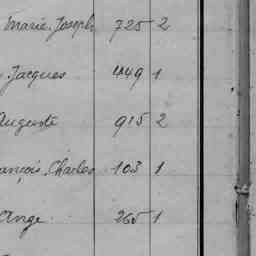 Marie, Joseph 725 2
Jacques 449 1
Auguste 915 2
ançois, Charles 103 1
Ange 265 1